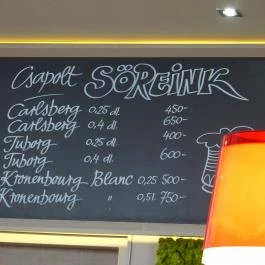 Csapolt SÖReink
Carlsberg 0,25 dl. 450-
Carlsberg 0,4 dl. 650-
Tuborg 0,25 dl. 400-
Tuborg 0,4 dl. 600-
Kronenbourg Blanc 0,25 500-
Kronenbourg " 0,5l. 750-